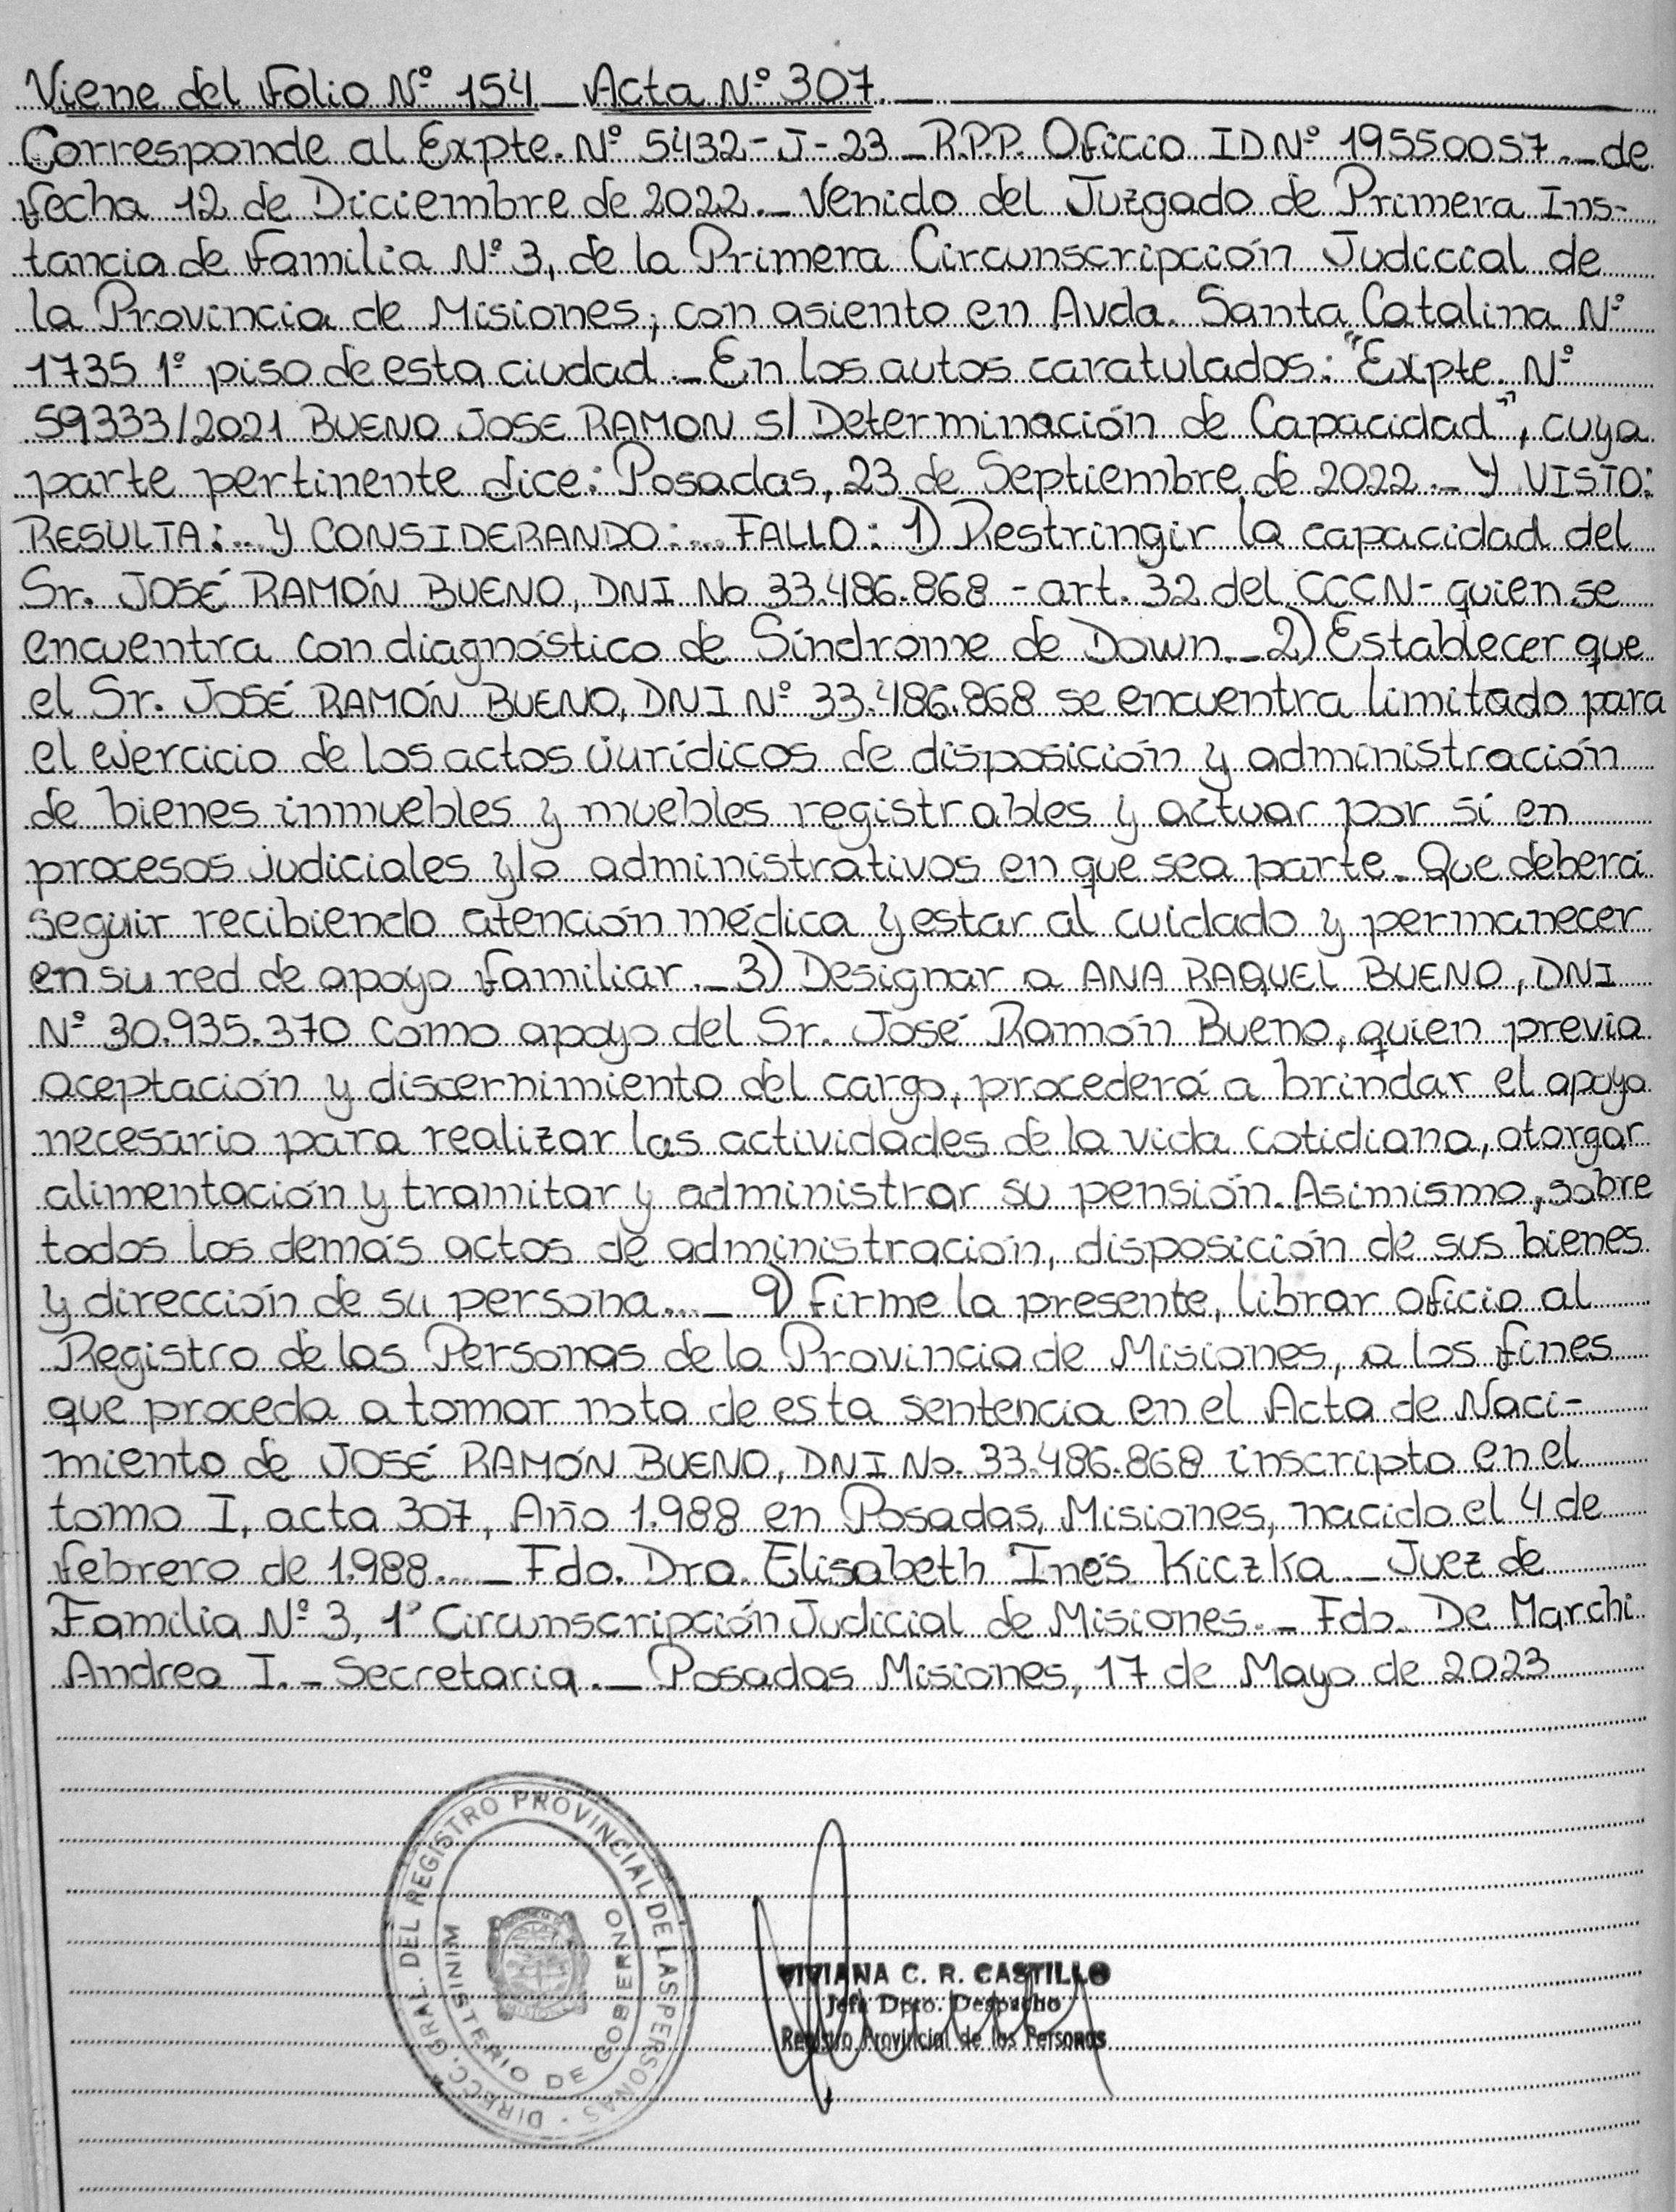 Viene del Folio Nº 154 _ Acta Nº 307. _
Corresponde al Expte. Nº 5432-J-23 _ R.P.P. Oficio ID Nº 19550057 ._ de
fecha 12 de Diciembre de 2022._ Venido del Juzgado de Primera Ins-
tancia de Familia Nº 3, de la Primera Circunscripción Judicial de
la Provincia de Misiones, con asiento en Avda. Santa Catalina Nº
1735 1º piso de esta ciudad _ En los autos caratulados: "Expte. Nº
59333/2021 BUENO JOSE RAMON S/ Determinación de Capacidad", cuya
parte pertinente dice: Posadas, 23 de Septiembre de 2022._ Y VISTO:
RESULTA:... Y CONSIDERANDO:... FALLO: 1) Restringir la capacidad del
Sr. JOSÉ RAMÓN BUENO, DNI No 33.486.868 - art. 32 del CCCN- quien se
encuentra con diagnóstico de Síndrome de Down._ 2) Establecer que
el Sr. JOSÉ RAMÓN BUENO, DNI Nº 33.486.868 se encuentra limitado para
el ejercicio de los actos jurídicos de disposición y administración
de bienes inmuebles y muebles registrables y actuar por sí en
procesos judiciales y/o administrativos en que sea parte. Que deberá
seguir recibiendo atención médica y estar al cuidado y permanecer
en su red de apoyo familiar._ 3) Designar a ANA RAQUEL BUENO, DNI
Nº 30.935.370 como apoyo del Sr. José Ramón Bueno, quien previa
aceptación y discernimiento del cargo, procederá a brindar el apoyo
necesario para realizar las actividades de la vida cotidiana, otorgar
alimentación y tramitar y administrar su pensión. Asimismo, sobre
todos los demás actos de administración, disposición de sus bienes
y dirección de su persona..._ 9) Firme la presente, librar oficio al
Registro de las Personas de la Provincia de Misiones, a los fines
que proceda a tomar nota de esta sentencia en el Acta de Naci-
miento de JOSÉ RAMÓN BUENO, DNI No. 33.486.868 inscripto en el
tomo I, acta 307, Año 1.988 en Posadas, Misiones, nacido el 4 de
febrero de 1.988..._ Fdo. Dra. Elisabeth Inés Kiczka _ Juez de
Familia Nº 3, 1º Circunscripción Judicial de Misiones._ Fdo. De Marchi
Andrea I. - Secretaria._ Posadas Misiones, 17 de Mayo de 2023
DIRECC. GRAL. DEL REGISTRO PROVINCIAL DE LAS PERSONAS -
MINISTERIO DE GOBIERNO
VIVIANA C. R. CASTILLO
Jefa Dpto. Despacho
Registro Provincial de las Personas